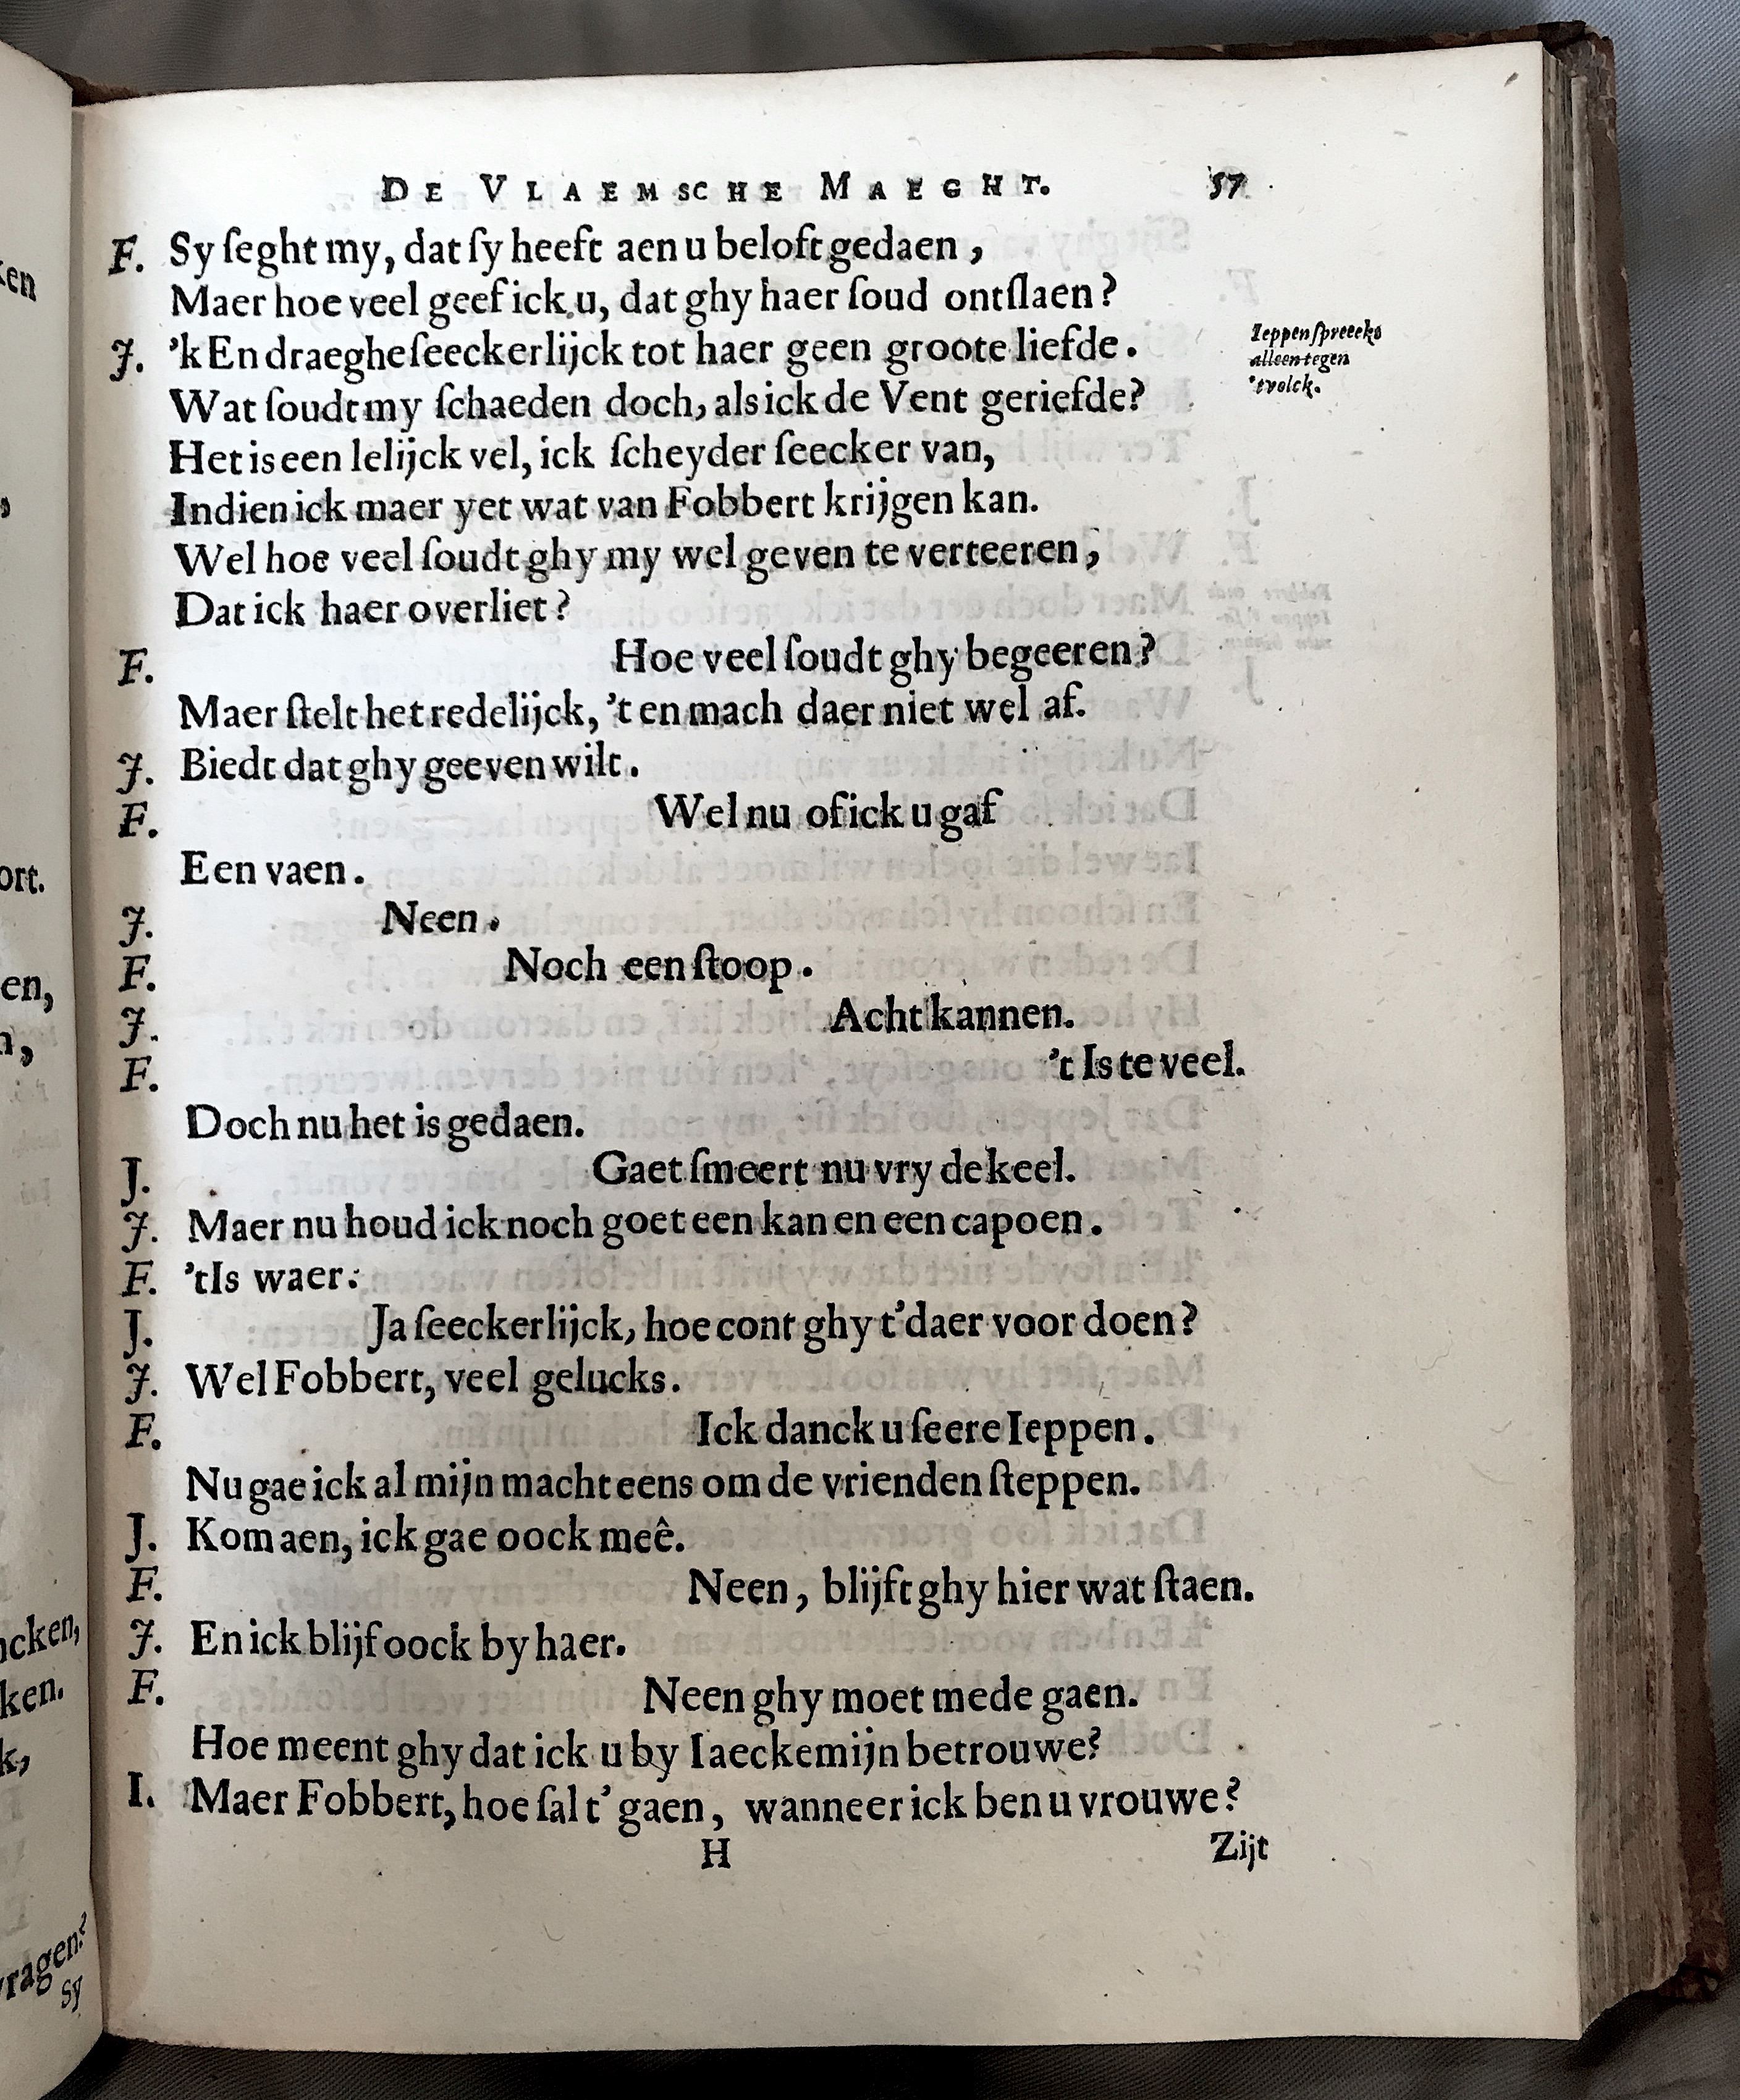 DE VLAEMSCHE MAEGHT. 57
F. Sy ſeght my, dat ſy heeft aen u beloft gedaen,
Maer hoe veel geef ick u, dat ghy haer ſoud ontſlaen?
J. ’k En draeghe ſeeckerlijck tot haer geen groote liefde.
Ieppen ſpreeckt
alleen tegen
’tvolck.
Wat ſoudt my ſchaeden doch, als ick de Vent geriefde?
Het is een lelijck vel, ick ſcheyder ſeecker van,
Indien ick maer yet wat van Fobbert krijgen kan.
Wel hoe veel ſoudt ghy my wel geven te verteeren,
Dat ick haer overliet?
F. Hoe veel ſoudt ghy begeeren?
Maer ſtelt het redelijck, ’t en mach daer niet wel af.
J. Biedt dat ghy geeven wilt.
F. Wel nu of ick u gaf
Een vaen.
J. Neen.
F. Noch een ſtoop.
J. Acht kannen.
F. ’t Is te veel.
Doch nu het is gedaen.
J. Gaet ſmeert nu vry de keel.
J. Maer nu houd ick noch goet een kan en een capoen.
F. ’tIs waer.
J. Ja ſeeckerlijck, hoe cont ghy t’daer voor doen?
J. Wel Fobbert, veel gelucks.
F. Ick danck u ſeere Ieppen.
Nu gae ick al mijn macht eens om de vrienden ſteppen.
J. Kom aen, ick gae oock meê.
F. Neen, blijft ghy hier wat ſtaen.
J. En ick blijf oock by haer.
F. Neen ghy moet mede gaen.
Hoe meent ghy dat ick u by Iaeckemijn betrouwe?
I. Maer Fobbert, hoe ſal t’ gaen, wanneer ick ben u vrouwe?
H Zijt